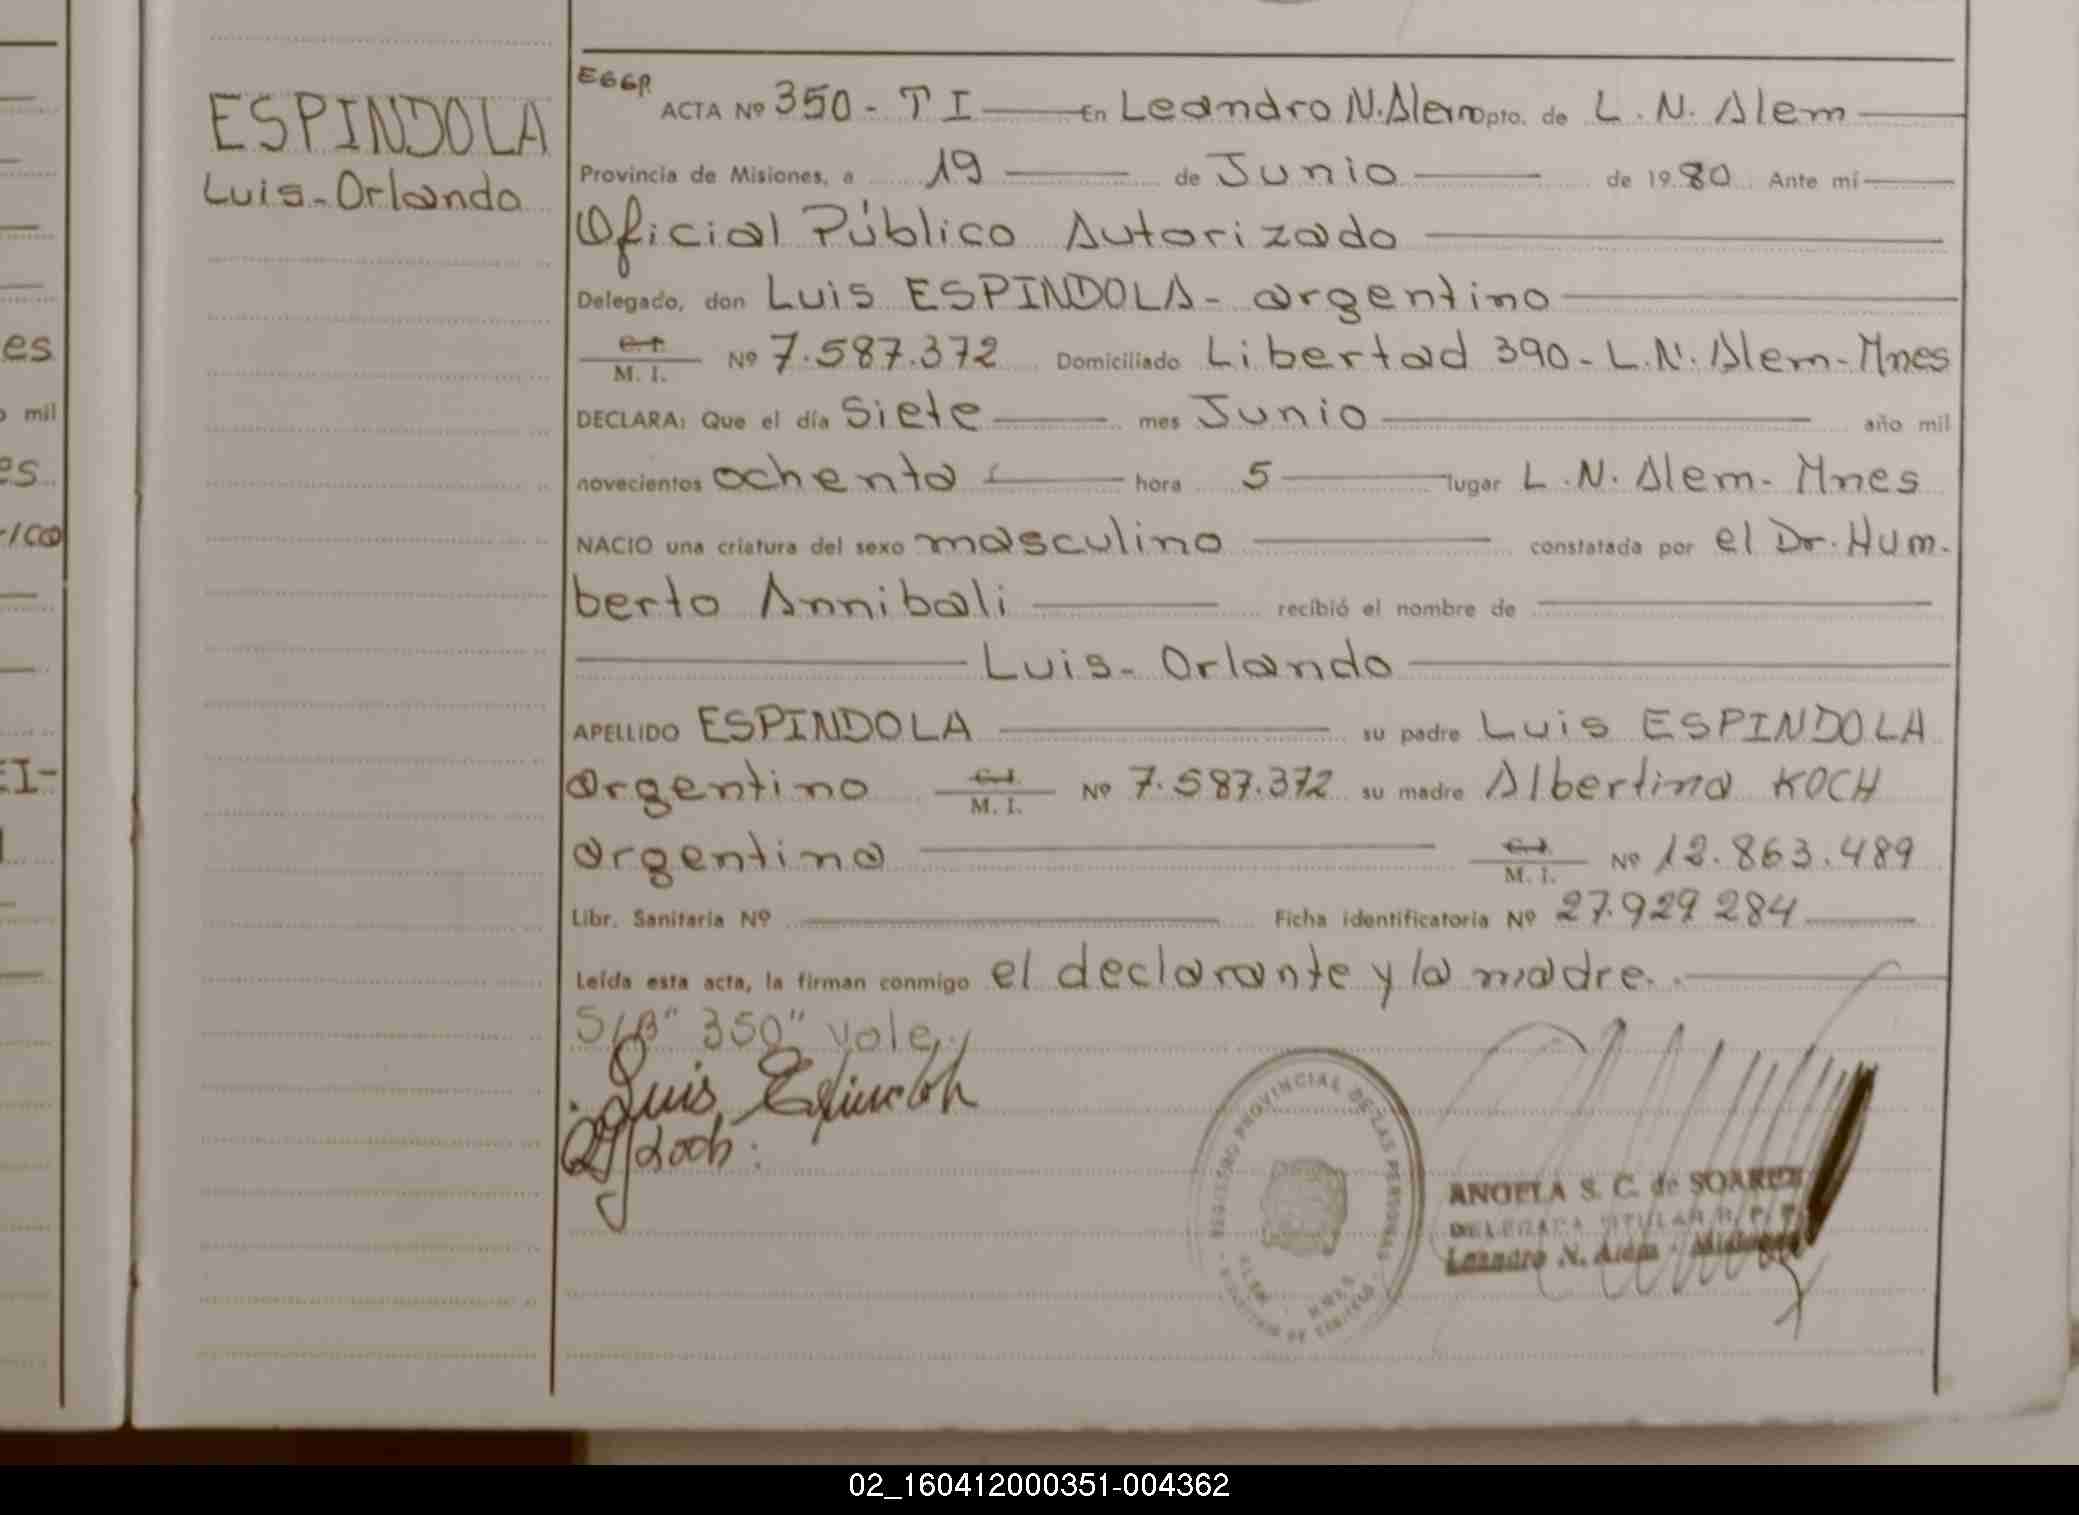 es
o mil
es.
rico
EI-
ESPINDOLA
Luis-Orlando
E66P
ACTA Nº 350- T I — En Leandro N.Alem Dpto. de L. N. Alem —
Provincia de Misiones, a 19 — de Junio — de 1980 Ante mí —
Oficial Público Autorizado —
Delegado, don Luis ESPINDOLA- argentino —
C. I.
M. I. Nº 7.587.372 Domiciliado Libertad 390-L.N.Alem-Mnes
DECLARA: Que el día Siete — mes Junio — año mil
novecientos ochenta — hora 5 — lugar L.N. Alem- Mnes
NACIO una criatura del sexo masculino — constatada por el Dr. Hum-
berto Annibali — recibió el nombre de —
— Luis- Orlando —
APELLIDO ESPINDOLA — su padre Luis ESPINDOLA
argentino C. I. M. I. Nº 7.587.372 su madre Albertina KOCH
argentina — C. I. M. I. Nº 12.863.489
Libr. Sanitaria Nº — Ficha identificatoria Nº 27.929 284 —
Leída esta acta, la firman conmigo el declarante y la madre. —
S/B" 350" vale
Luis Espindola
REGISTRO PROVINCIAL DE LAS PERSONAS
ALEM MNES
ANGELA S. C. de SOAREZ
DELEGADA TITULAR R. P. P.
Leandro N. Alem - Misiones
02_160412000351-004362